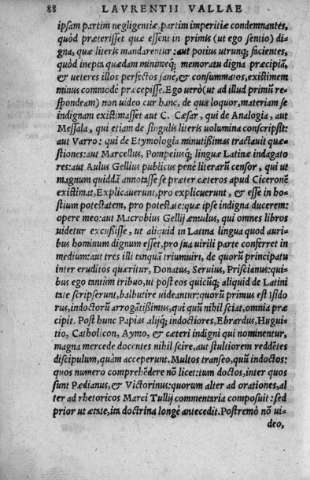 88 LAVRENTII VALLAE
ipsam partim negligentiæ, partim imperitiæ condemnantes,
quòd præterisset quæ essent in primis (ut ego sentio) di-
gna, quæ literis mandarentur: aut potius utrunq; facientes,
quòd inepta quædam minimeq; memoratu digna præcipiāt,
et ueteres illos perfectos sanè, & consummatos, existimem
minus commode præcepisse. Ego uerò (ut ad illud primū re-
spondeam) non uideo cur hanc, de qua loquor, materiam se
indignam existimasset aut C. Cæsar, qui de Analogia, aut
Messala, qui etiam de singulis literis uolumina conscripsit:
aut Varro: qui de Etymologia minutissimas tractauit quæ-
stiones: aut Marcellus, Pompeiusq; linguæ Latinæ indagato
res: aut Aulus Gellius publicus penè literarū censor, qui ut
magnum quiddā annotasse se præter cæteros apud Ciceronē
existimat, Explicauerunt, pro explicuerunt, & esse in ho-
stium potestatem, pro potestate: quæ ipse indigna ducerem:
opere meo: aut Macrobius Gellij æmulus, qui omnes libros
uidetur excussisse, ut aliquid in Latina lingua quod auri-
bus hominum dignum esset, pro sua uirili parte conferret in
medium: aut tres illi tanquā triumuiri, de quorū principatu
inter eruditos quæritur, Donatus, Seruius, Priscianus: qui-
bus ego tantum tribuo, ut post eos quicūq; aliquid de Latini
tate scripserunt, balbutire uideantur: quorū primus est Isido
rus, indoctorū arrogātissimus, qui quū nihil sciat, omnia præ
cipit. Post hunc Papias aliiq; indoctiores, Ebrardus, Hugui-
tio, Catholicon, Aymo, & cæteri indigni qui nominentur,
magna mercede docentes nihil scire, aut stultiorem reddētes
discipulum, quàm acceperunt. Multos transeo, quū indoctos:
quos numero comprehēdere nō licet: tum doctos, inter quos
sunt Pædianus, & Victorinus: quorum alter ad orationes, al
ter ad rhetoricos Marci Tullij commentaria composuit: sed
prior ut ætate, ita doctrina longè antecedit. Postremò nō ui-
deo,